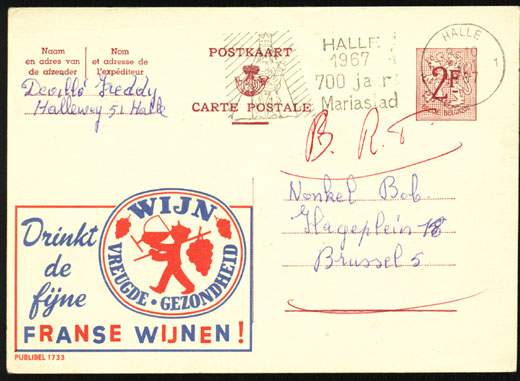 Naam
en adres van
de afzender
Nom
et adresse de
l'expéditeur
Devillé Freddy
Halleweg 51 Halle
POSTKAART
CARTE POSTALE
HALLE
1967
700 jaar
Mariastad
HALLE
1
2F
BELGIE BELGIQUE
B. R. T
Nonkel Bob.
Flageyplein 18
Brussel 5
Drinkt
de
fijne
FRANSE WIJNEN!
WIJN
VREUGDE · GEZONDHEID
PUBLIBEL 1733